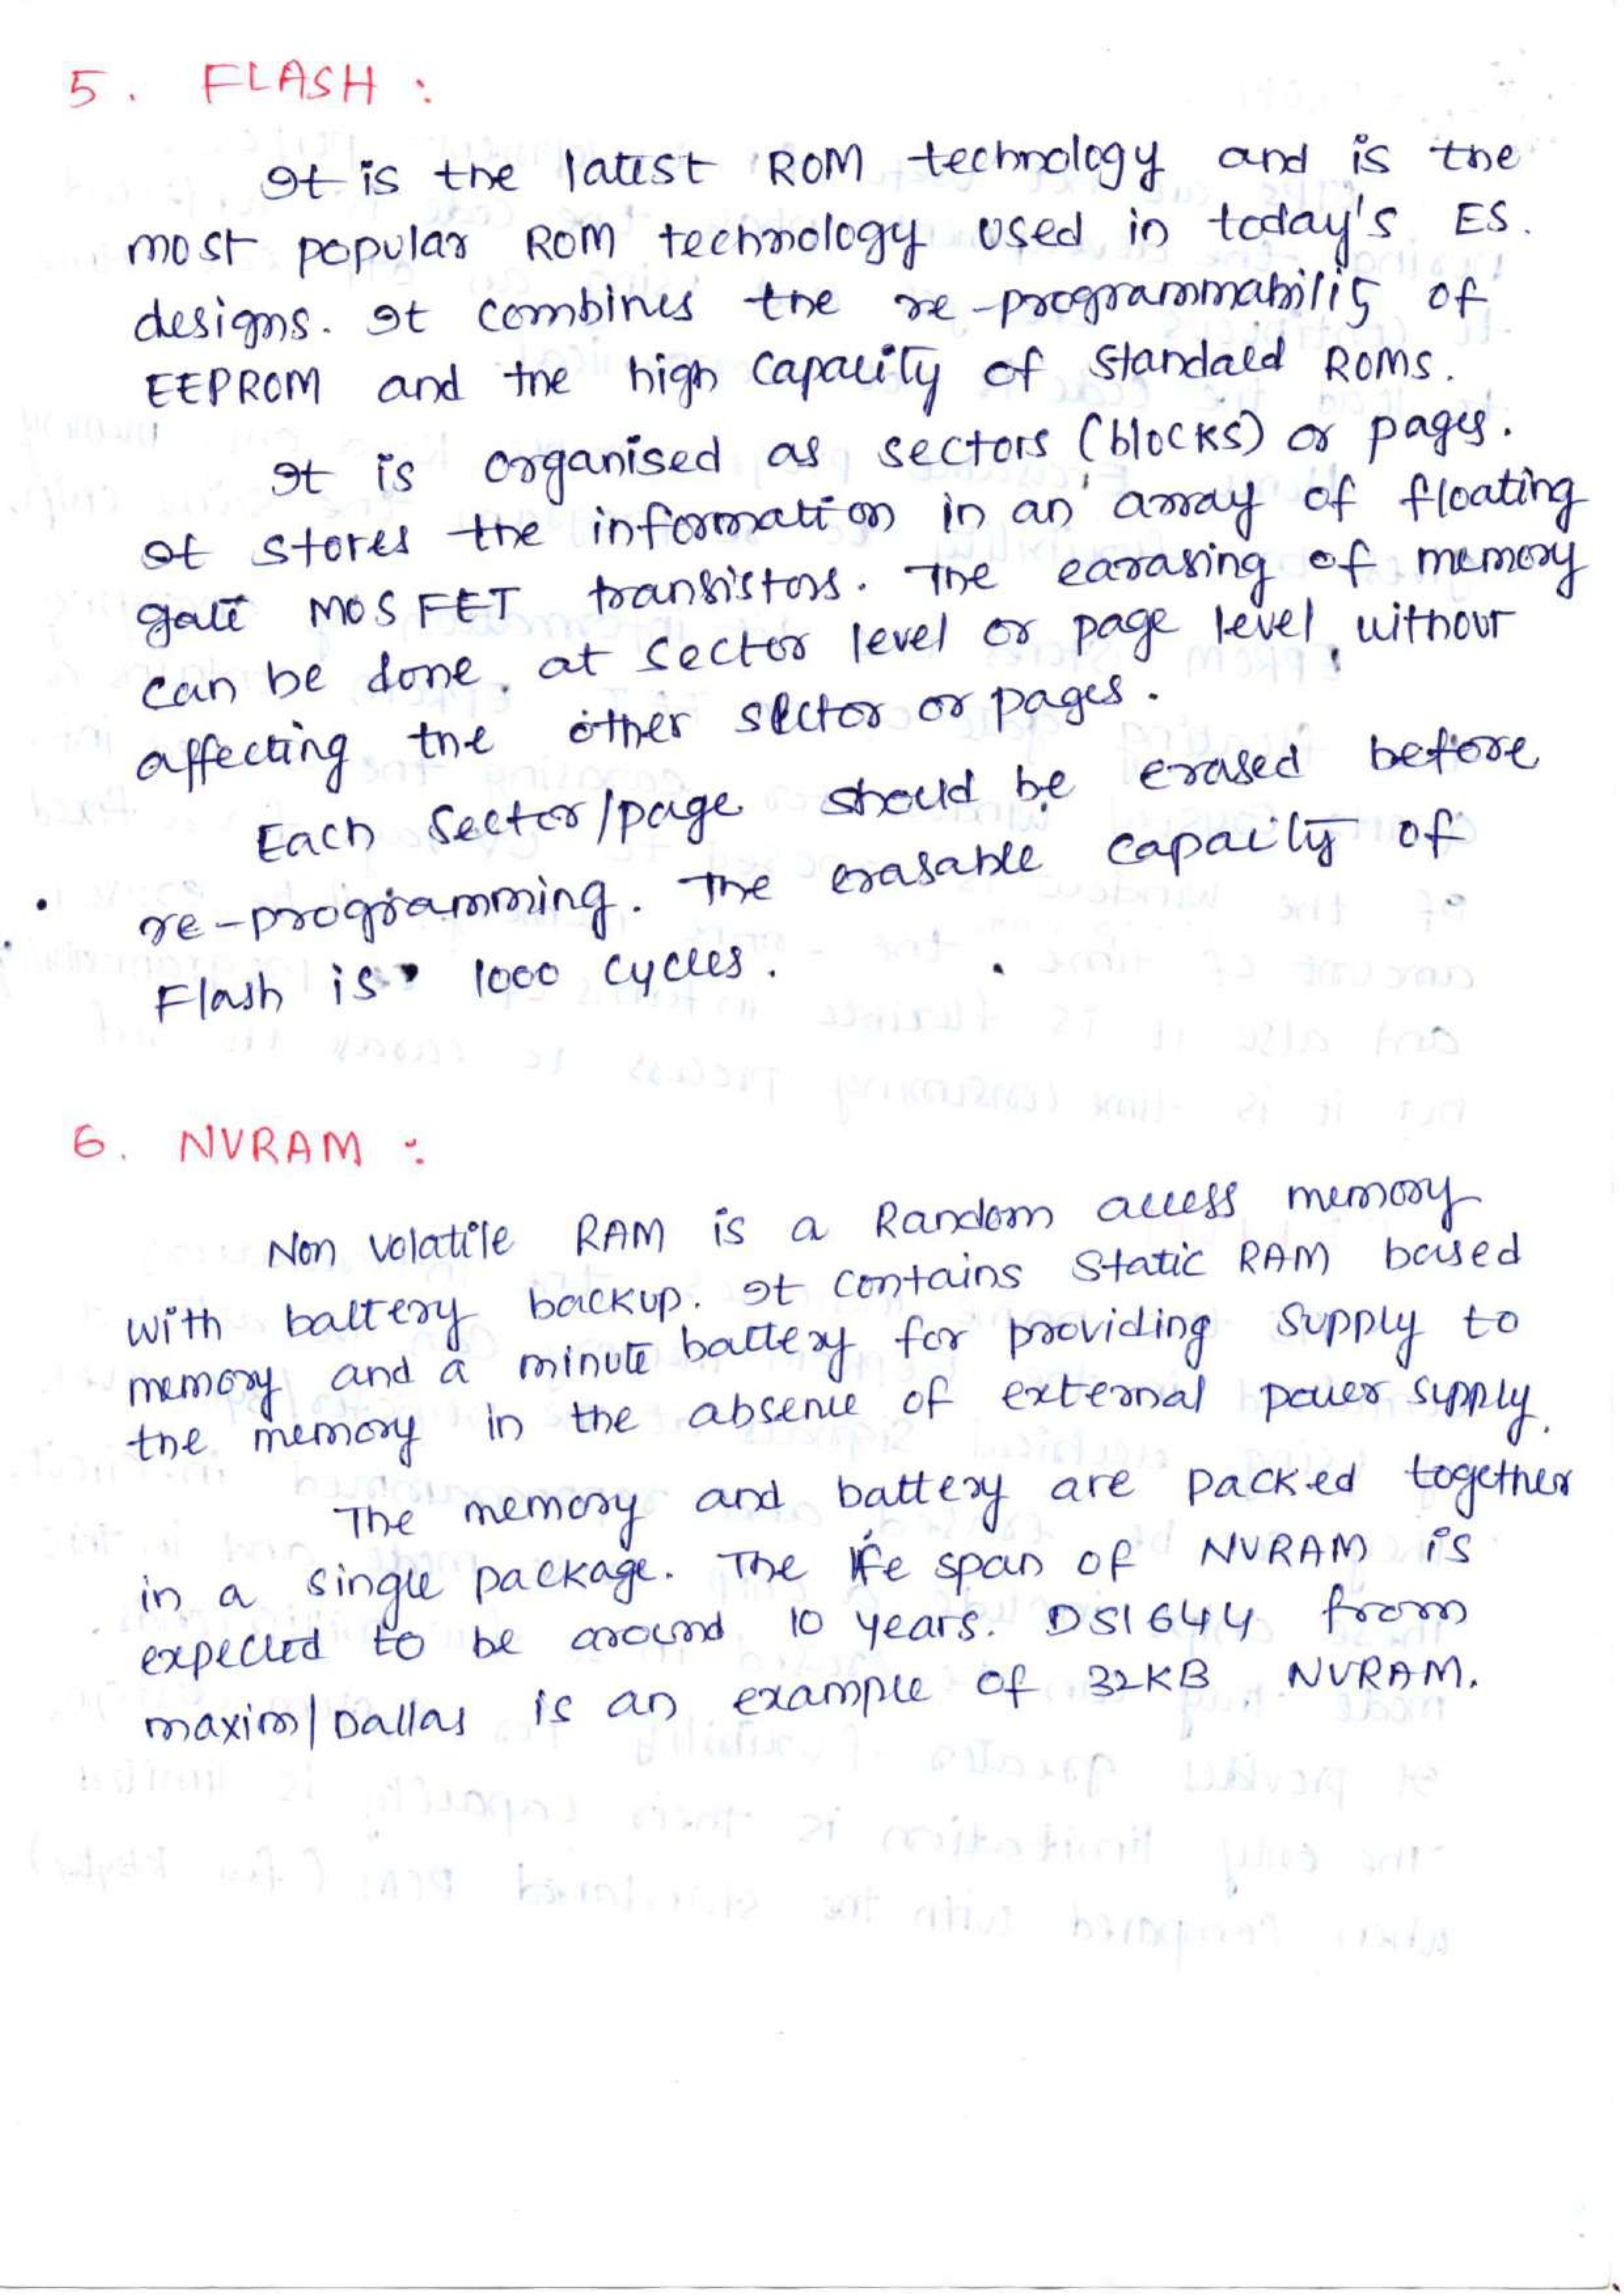 5. FLASH :
It is the latest ROM technology and is the
most popular ROM technology used in today's ES.
designs. It combines the re-programmability of
EEPROM and the high capacity of standard ROMs.
It is organised as sectors (blocks) or pages.
It stores the information in an array of floating
gate MOSFET transistors. The earasing of memory
can be done at sector level or page level, without
affecting the other sector or pages.
Each sector/page should be erased before
re-programming. The erasable capacity of
Flash is 1000 cycles.
6. NVRAM :
Non volatile RAM is a Random access memory
with battery backup. It contains static RAM based
memory and a minute battery for providing supply to
the memory in the absence of external power supply.
The memory and battery are packed together
in a single package. The life span of NVRAM is
expected to be around 10 years. DS1644 from
maxim/Dallas is an example of 32KB NVRAM.